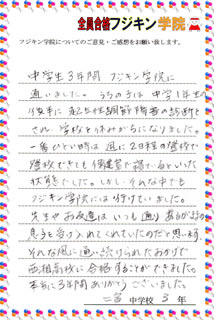 全員合格フジキン学院
フジキン学院についてのご意見・ご感想をお願い致します。
中学生3年間 フジキン学院に
通いました。うちの子は 中学1年生の
後半に 起立性調節障害の診断を
され、学校を休みがちになりました。
一番ひどい時は 週に 2日程の登校で
登校できても保健室で寝ているといった
状態でした。しかし、そんな中でも
フジキン学院には行けていました。
先生や お友達は いつも 通り
息子を受け入れてくれていたのだと思います。
そんな風に通い続けられたおかげで
西湘高校に合格することができました。
本当に3年間ありがとうございました。
中学校 3 年